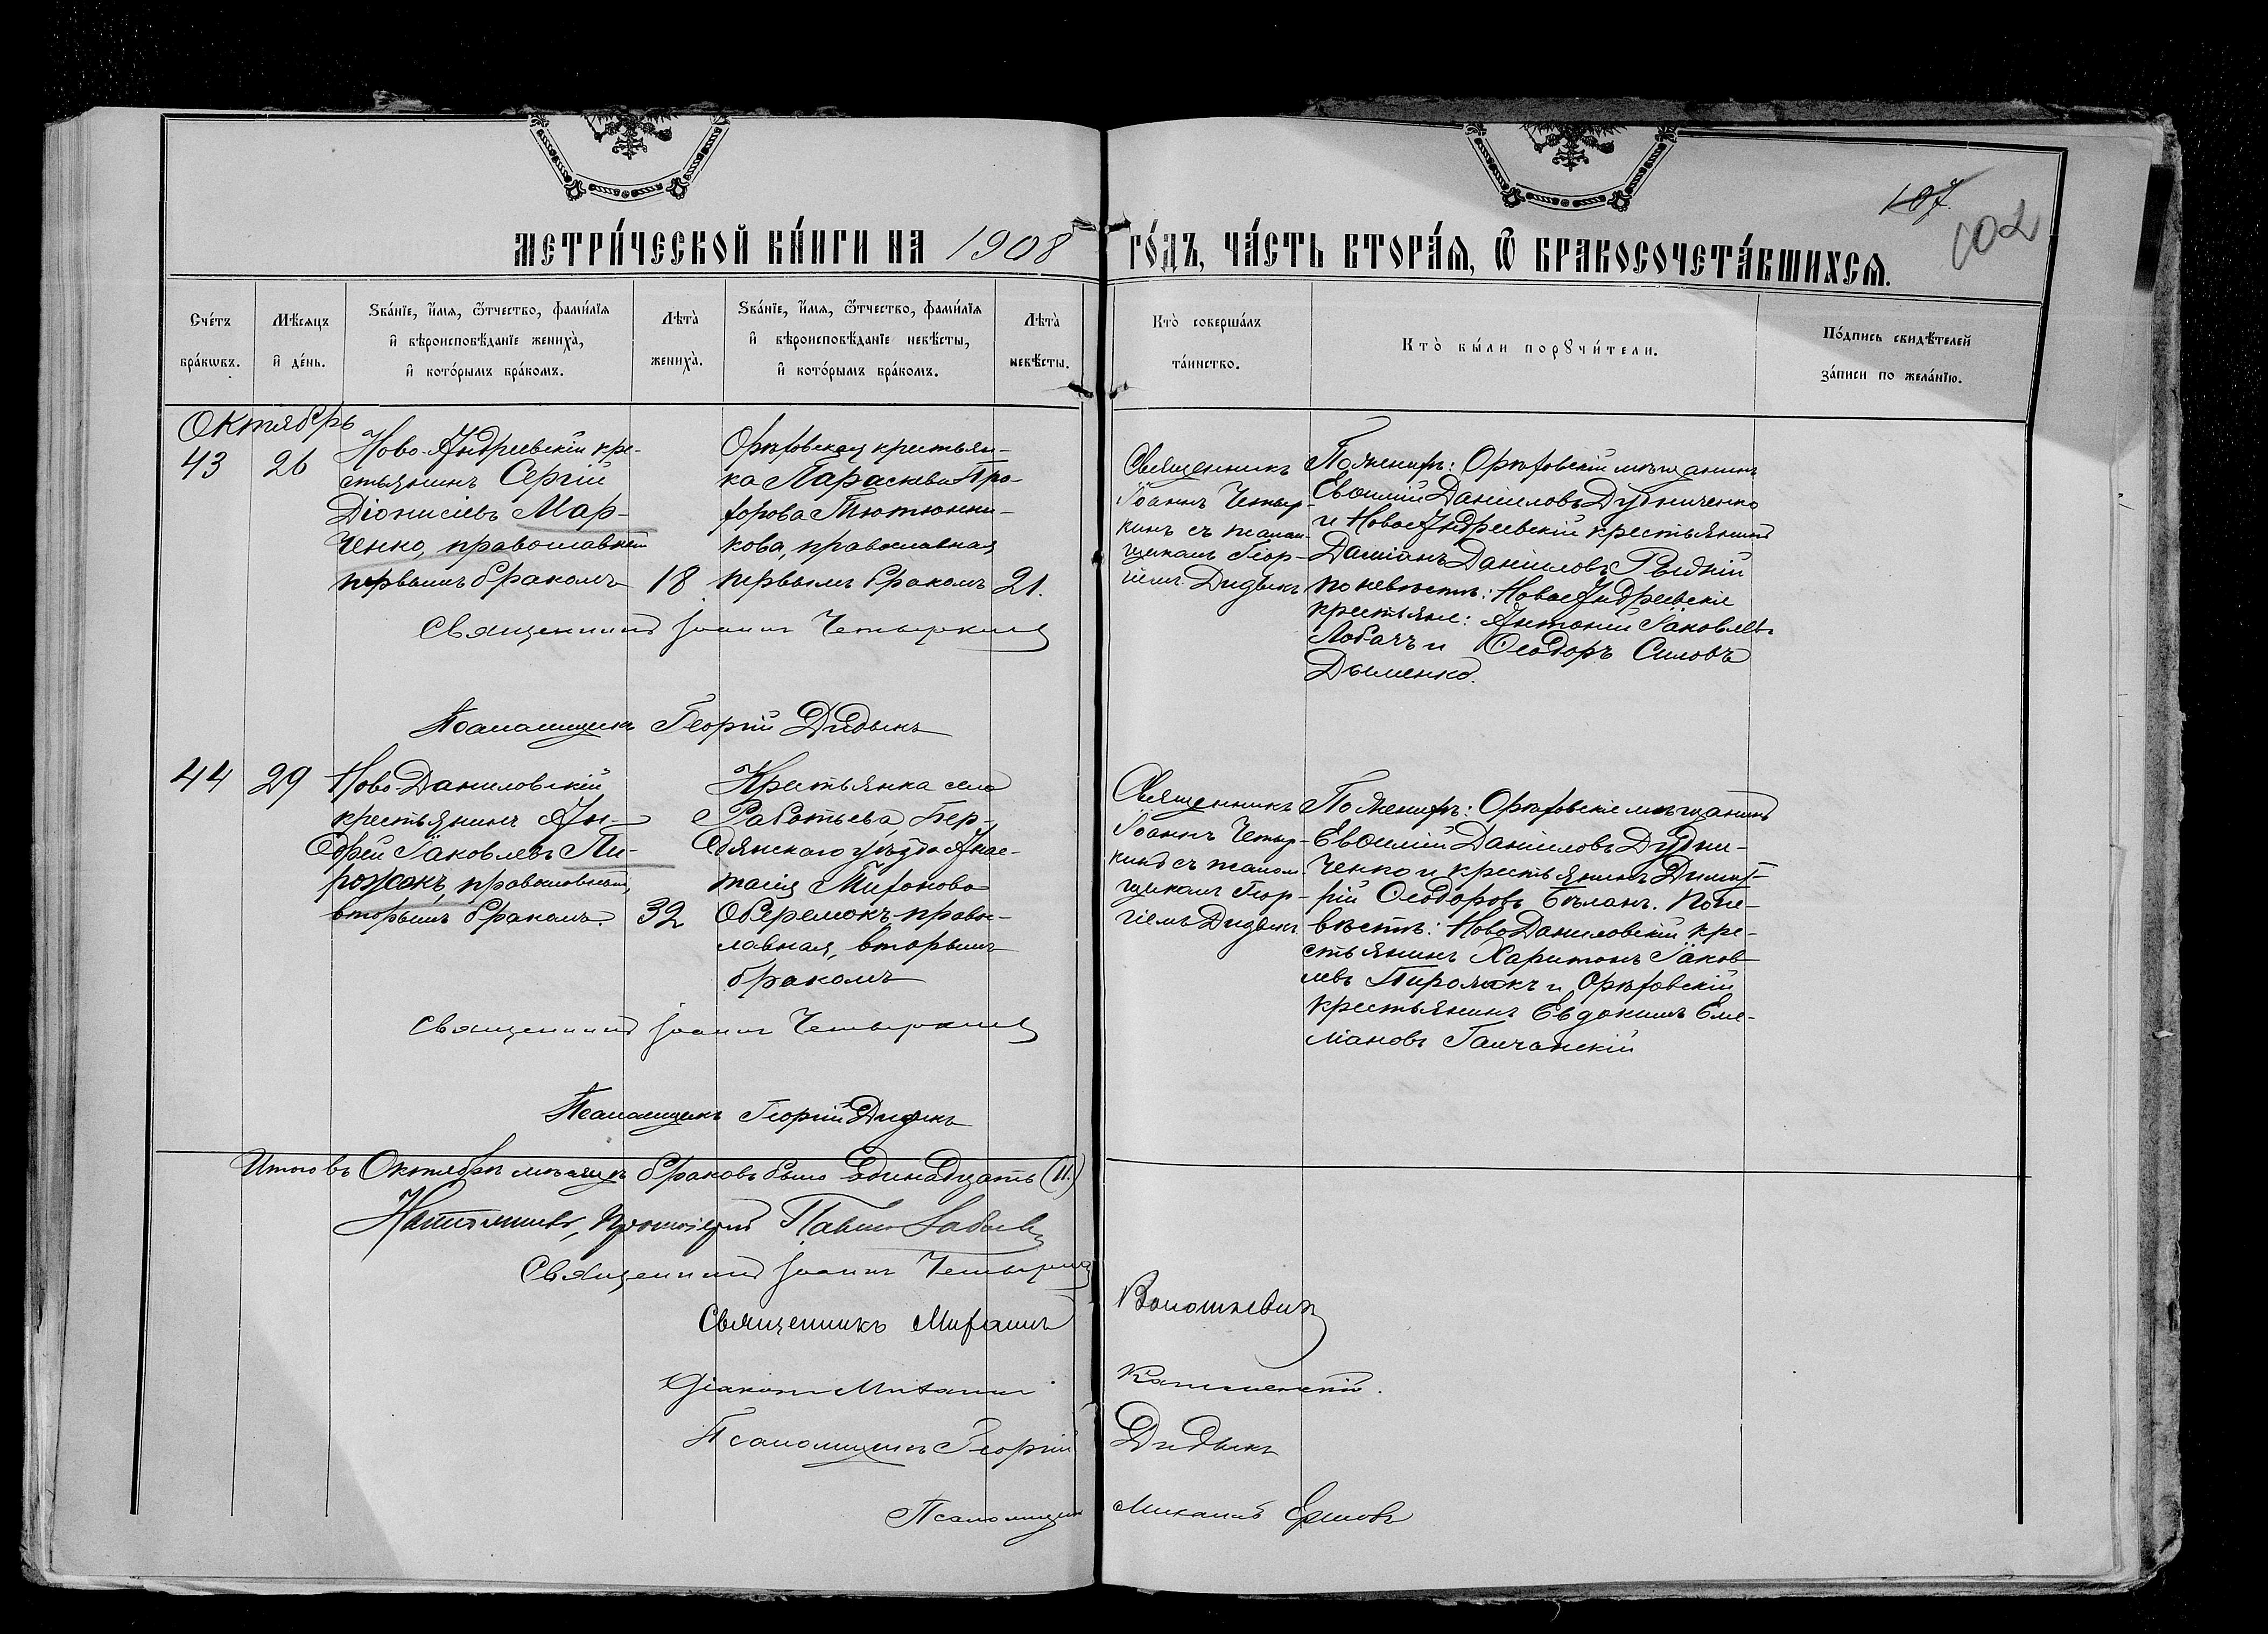 107.
102
МЕТРИ́ЧЕСКОЙ КНИ́ГИ НА 1908 ГО́ДЪ, ЧА́СТЬ ВТОРА́Ѧ, Ѿ БРАКОСОЧЕТА́ВШИХСѦ.
Сче́тъ бра́кѡвъ.
Мѣ́сѧцъ и҆ де́нь.
Ѕва́нїе, и҆́мѧ, ѻ҆́тчество, фами́лїѧ
и҆ вѣроисповѣ́данїе жениха̀,
и҆ кото́рымъ бра́комъ.
Лѣта̀ жениха̀.
Ѕва́нїе, и҆́мѧ, ѻ҆́тчество, фами́лїѧ
и҆ вѣроисповѣ́данїе невѣ́сты,
и҆ кото́рымъ бра́комъ.
Лѣта̀ невѣ́сты.
Кто̀ соверша́лъ та́инство.
Кто̀ бы́ли порꙋчи́тели.
По́дпись свидѣ́телей
за́писи по жела́нїю.
Октябрь
43 26
Ново-Андреевскій кре-
стьянинъ Сергій
Діонисіевъ Мар-
ченко, православный
первымъ бракомъ 18
Орѣховская крестьян-
ка Параскева Про-
хорова Тютюнни-
кова, православная,
первымъ бракомъ 21.
Священникъ
Іоаннъ Четыр-
кинъ съ псалом-
щикомъ Геор-
гіемъ Дидыкъ
По женихѣ: Орѣховскій мѣщанинъ
Евѳимій Даніиловъ Дудниченко
и НовоАндреевскій крестьянинъ
Даміанъ Даніиловъ Рѣдкій
по невѣстѣ: НовоАндреевскіе
крестьяне: Антоній Іаковлевъ
Лобачъ и Ѳеодоръ Силовъ
Дыменко.
Священникъ Іоаннъ Четыркинъ
Псаломщикъ Георгій Дидыкъ
44 29
Ново-Даниловскій
крестьянинъ Ан-
дрей Іаковлевъ Пи-
рожокъ, православный,
вторымъ бракомъ. 32
Крестьянка села
Работьева, Бер-
дянскаго уѣзда Анас-
тасія Миронова
Оберемокъ, право-
славная, вторымъ
бракомъ
Священникъ
Іоаннъ Четыр-
кинъ съ псалом-
щикомъ Геор-
гіемъ Дидыкъ
По женихѣ: Орѣховскіе мѣщанинъ
Евѳимій Даніиловъ Дудни-
ченко и крестьянинъ Димит-
рій Ѳеодоровъ Бѣланъ. По не-
вѣстѣ: НовоДаниловскій кре-
стьянинъ Харитонъ Іаков-
левъ Пирожокъ и Орѣховскій
крестьянинъ Евдокимъ Еме-
ліановъ Галчанскій
Священникъ Іоаннъ Четыркинъ
Псаломщикъ Георгій Дидыкъ
Итого въ Октябрѣ мѣсяцѣ браковъ было Одинадцать (11.)
Настоятель, Протоіерей Павелъ
Священникъ Іоаннъ Четыркинъ
Священникъ Михаилъ Волошкевичъ
Діаконъ Михаилъ Каменскій.
Псаломщикъ Георгій Дидыкъ
Псаломщикъ Михаилъ Ершовъ